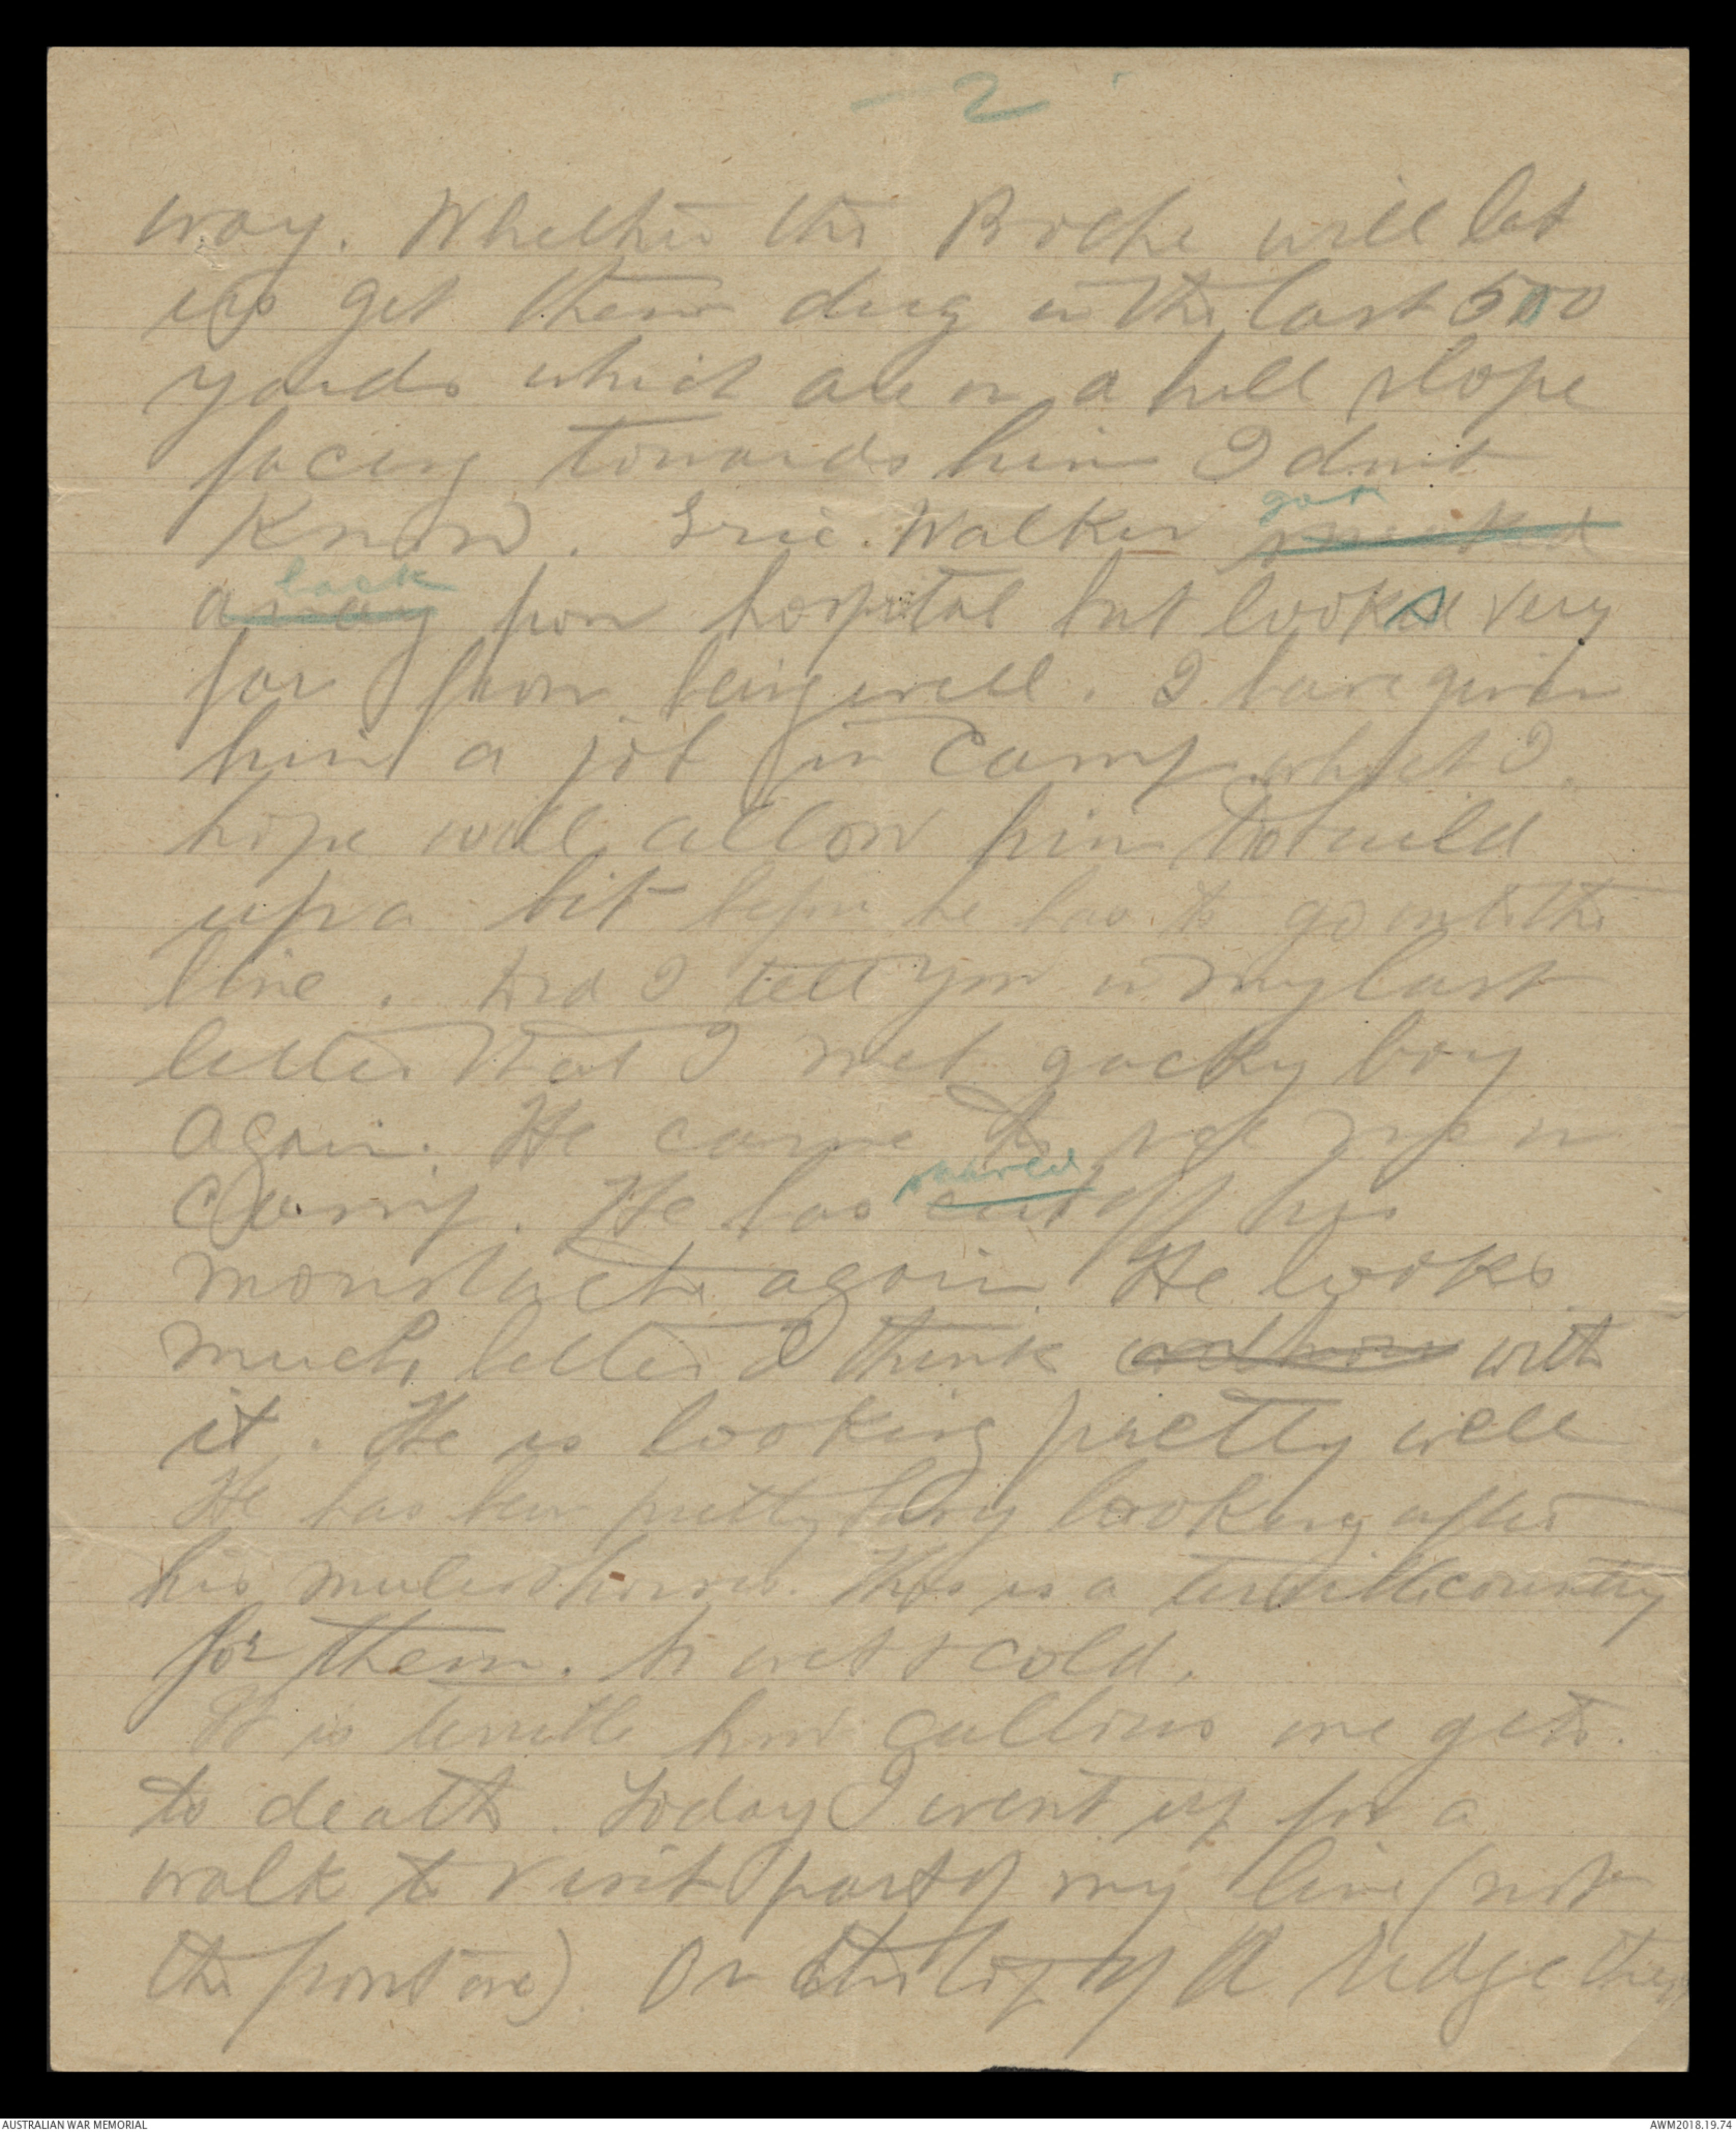 - 2
way. Whether the Boche will let
us get them dug in the last 500
yards which are on a hill slope
facing towards him I don't
got
know. Eric Walker sneaked
back
away from hospital but looked very
far from being well. I have given
him a job in Camp which I
hope will allow him to build
up a bit before he has to go into the
line. Did I tell you in my last
letter that I met Jacky boy
again. He came to see me in
shaved
Camp. He has cut off his
moustache again. He looks
much better I think with
it. He is looking pretty well
He has been pretty busy looking after
his mules & horses. This is a terrible country
for them. So wet & cold.
It is terrible how callous one gets
to death. Today I went up for a
walk to visit part of my line (not
the front one). On the top of a ridge there
AUSTRALIAN WAR MEMORIAL
AWM2018.19.74